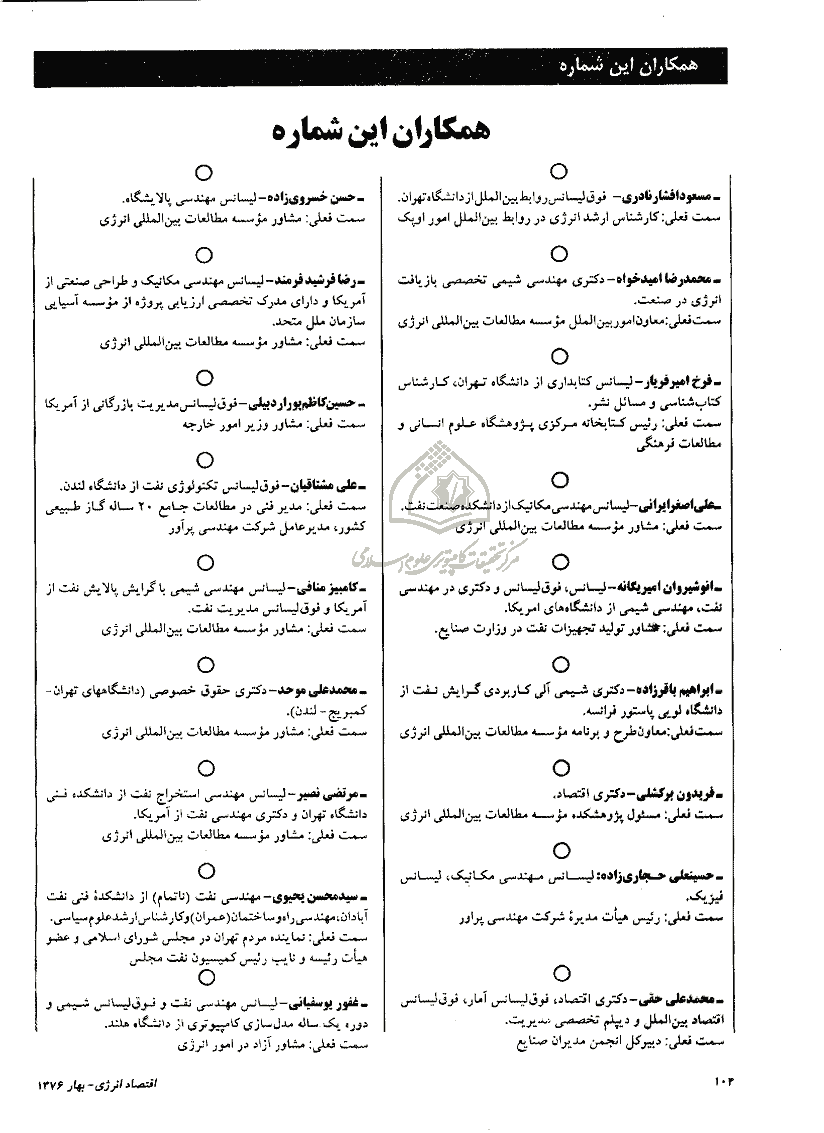 همکاران این شماره
همکاران این شماره
ـ مسعود افشار نادری- فوق‌لیسانس روابط بین‌الملل از دانشگاه تهران.
سمت فعلی: کارشناس ارشد انرژی در روابط بین‌الملل امور اوپک
ـ محمدرضا امیدخواه- دکتری مهندسی شیمی تخصصی بازیافت
انرژی در صنعت.
سمت فعلی: معاون امور بین‌الملل مؤسسه مطالعات بین‌المللی انرژی
ـ فرخ امیرفریار- لیسانس کتابداری از دانشگاه تهران، کارشناس
کتاب‌شناسی و مسائل نشر.
سمت فعلی: رئیس کتابخانه مرکزی پژوهشگاه علوم انسانی و
مطالعات فرهنگی
ـ علی‌اصغر ایرانی- لیسانس مهندسی مکانیک از دانشکده صنعت نفت.
سمت فعلی: مشاور مؤسسه مطالعات بین‌المللی انرژی
ـ انوشیروان امیریگانه- لیسانس، فوق‌لیسانس و دکتری در مهندسی
نفت، مهندسی شیمی از دانشگاه‌های امریکا.
سمت فعلی: مشاور تولید تجهیزات نفت در وزارت صنایع.
ـ ابراهیم باقرزاده- دکتری شیمی آلی کاربردی گرایش نفت از
دانشگاه لویی پاستور فرانسه.
سمت فعلی: معاون طرح و برنامه مؤسسه مطالعات بین‌المللی انرژی
ـ فریدون برکشلی- دکتری اقتصاد.
سمت فعلی: مسئول پژوهشکده مؤسسه مطالعات بین‌المللی انرژی
ـ حسینعلی حجاری‌زاده: لیسانس مهندسی مکانیک، لیسانس
فیزیک.
سمت فعلی: رئیس هیأت مدیرۀ شرکت مهندسی پراور
ـ محمدعلی حقی- دکتری اقتصاد، فوق‌لیسانس آمار، فوق‌لیسانس
اقتصاد بین‌الملل و دیپلم تخصصی مدیریت.
سمت فعلی: دبیرکل انجمن مدیران صنایع
ـ حسن خسروی‌زاده- لیسانس مهندسی پالایشگاه.
سمت فعلی: مشاور مؤسسه مطالعات بین‌المللی انرژی
ـ رضا فرشید فرمند- لیسانس مهندسی مکانیک و طراحی صنعتی از
آمریکا و دارای مدرک تخصصی ارزیابی پروژه از مؤسسه آسیایی
سازمان ملل متحد.
سمت فعلی: مشاور مؤسسه مطالعات بین‌المللی انرژی
ـ حسین کاظم‌پور اردبیلی- فوق‌لیسانس مدیریت بازرگانی از آمریکا
سمت فعلی: مشاور وزیر امور خارجه
ـ علی مشتاقیان- فوق‌لیسانس تکنولوژی نفت از دانشگاه لندن.
سمت فعلی: مدیر فنی در مطالعات جامع ۲۰ ساله گاز طبیعی
کشور، مدیرعامل شرکت مهندسی پرآور
ـ کامبیز منافی- لیسانس مهندسی شیمی با گرایش پالایش نفت از
آمریکا و فوق‌لیسانس مدیریت نفت.
سمت فعلی: مشاور مؤسسه مطالعات بین‌المللی انرژی
ـ محمدعلی موحد- دکتری حقوق خصوصی (دانشگاههای تهران-
کمبریج- لندن).
سمت فعلی: مشاور مؤسسه مطالعات بین‌المللی انرژی
ـ مرتضی نصیر- لیسانس مهندسی استخراج نفت از دانشکده فنی
دانشگاه تهران و دکتری مهندسی نفت از آمریکا.
سمت فعلی: مشاور مؤسسه مطالعات بین‌المللی انرژی
ـ سیدمحسن یحیوی- مهندسی نفت (ناتمام) از دانشکدۀ فنی نفت
آبادان، مهندسی راه و ساختمان (عمران) و کارشناس ارشد علوم سیاسی.
سمت فعلی: نماینده مردم تهران در مجلس شورای اسلامی و عضو
هیأت رئیسه و نایب رئیس کمیسیون نفت مجلس
ـ غفور یوسفیانی- لیسانس مهندسی نفت و فوق‌لیسانس شیمی و
دوره یک ساله مدل‌سازی کامپیوتری از دانشگاه هلند.
سمت فعلی: مشاور آزاد در امور انرژی
مرکز تحقیقات کامپیوتری علوم اسلامی
۱۰۴
اقتصاد انرژی- بهار ۱۳۷۶